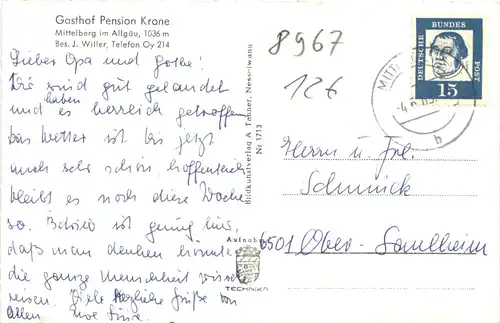 Gasthof Pension Krone
Mittelberg im Allgäu, 1036 m
Bes. J. Willer, Telefon Oy 214
Lieber Opa und
Wir sind gut gelandet
und haben es herrlich getroffen
Das Wetter ist bis jetzt
auch sehr schön, hoffentlich
bleibt es noch diese Woche
so. Betrieb ist genug hier,
daß man denken könnte
die ganze Menschheit würde
reisen. Viele herzliche Grüße von
Allen Eure
Bildkunstverlag A Tenner, Nesselwang
Nr 1713
Aufnahme
TECHNIKA
8967
12€
DEUTSCHE
BUNDES
POST
15
MITT
Herrn u. Frl.
Schmück
6501 Ober-Saulheim